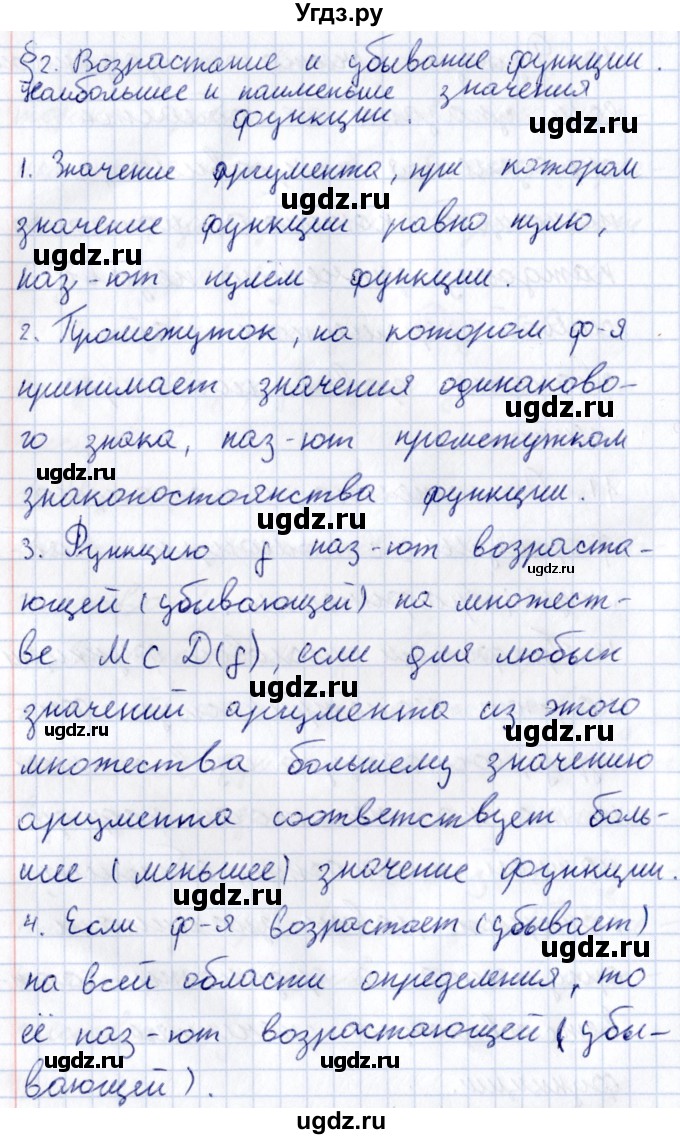 Угдз.ру
§2. Возрастание и убывание функции.
Наибольшее и наименьше значения
функции.
ugdz.ru
1. Значение аргумента, при котором
ugdz.ru
значение функции равно нулю,
ugdz.ru
наз-ют нулём функции.
ugdz.ru
2. Промежуток, на котором ф-я
принимает значения одинаково-
ugdz.ru
го знака, наз-ют промежутком
ugdz.ru
знакопостоянства функции.
3. Функцию f наз-ют возраста-
ugdz.ru
ugdz.ru
ющей (убывающей) на множест-
ве M ⊂ D(f), если для любых
ugdz.ru
значений аргумента из этого
ugdz.ru
ugdz.ru
множества большему значению
аргумента соответствует боль-
шее (меньшее) значение функции.
ugdz.ru
4. Если ф-я возрастает (убывает)
ugdz.ru
на всей области определения, то
её наз-ют возрастающей (убы-
ugdz.ru
ugdz.ru
вающей).
ugdz.ru